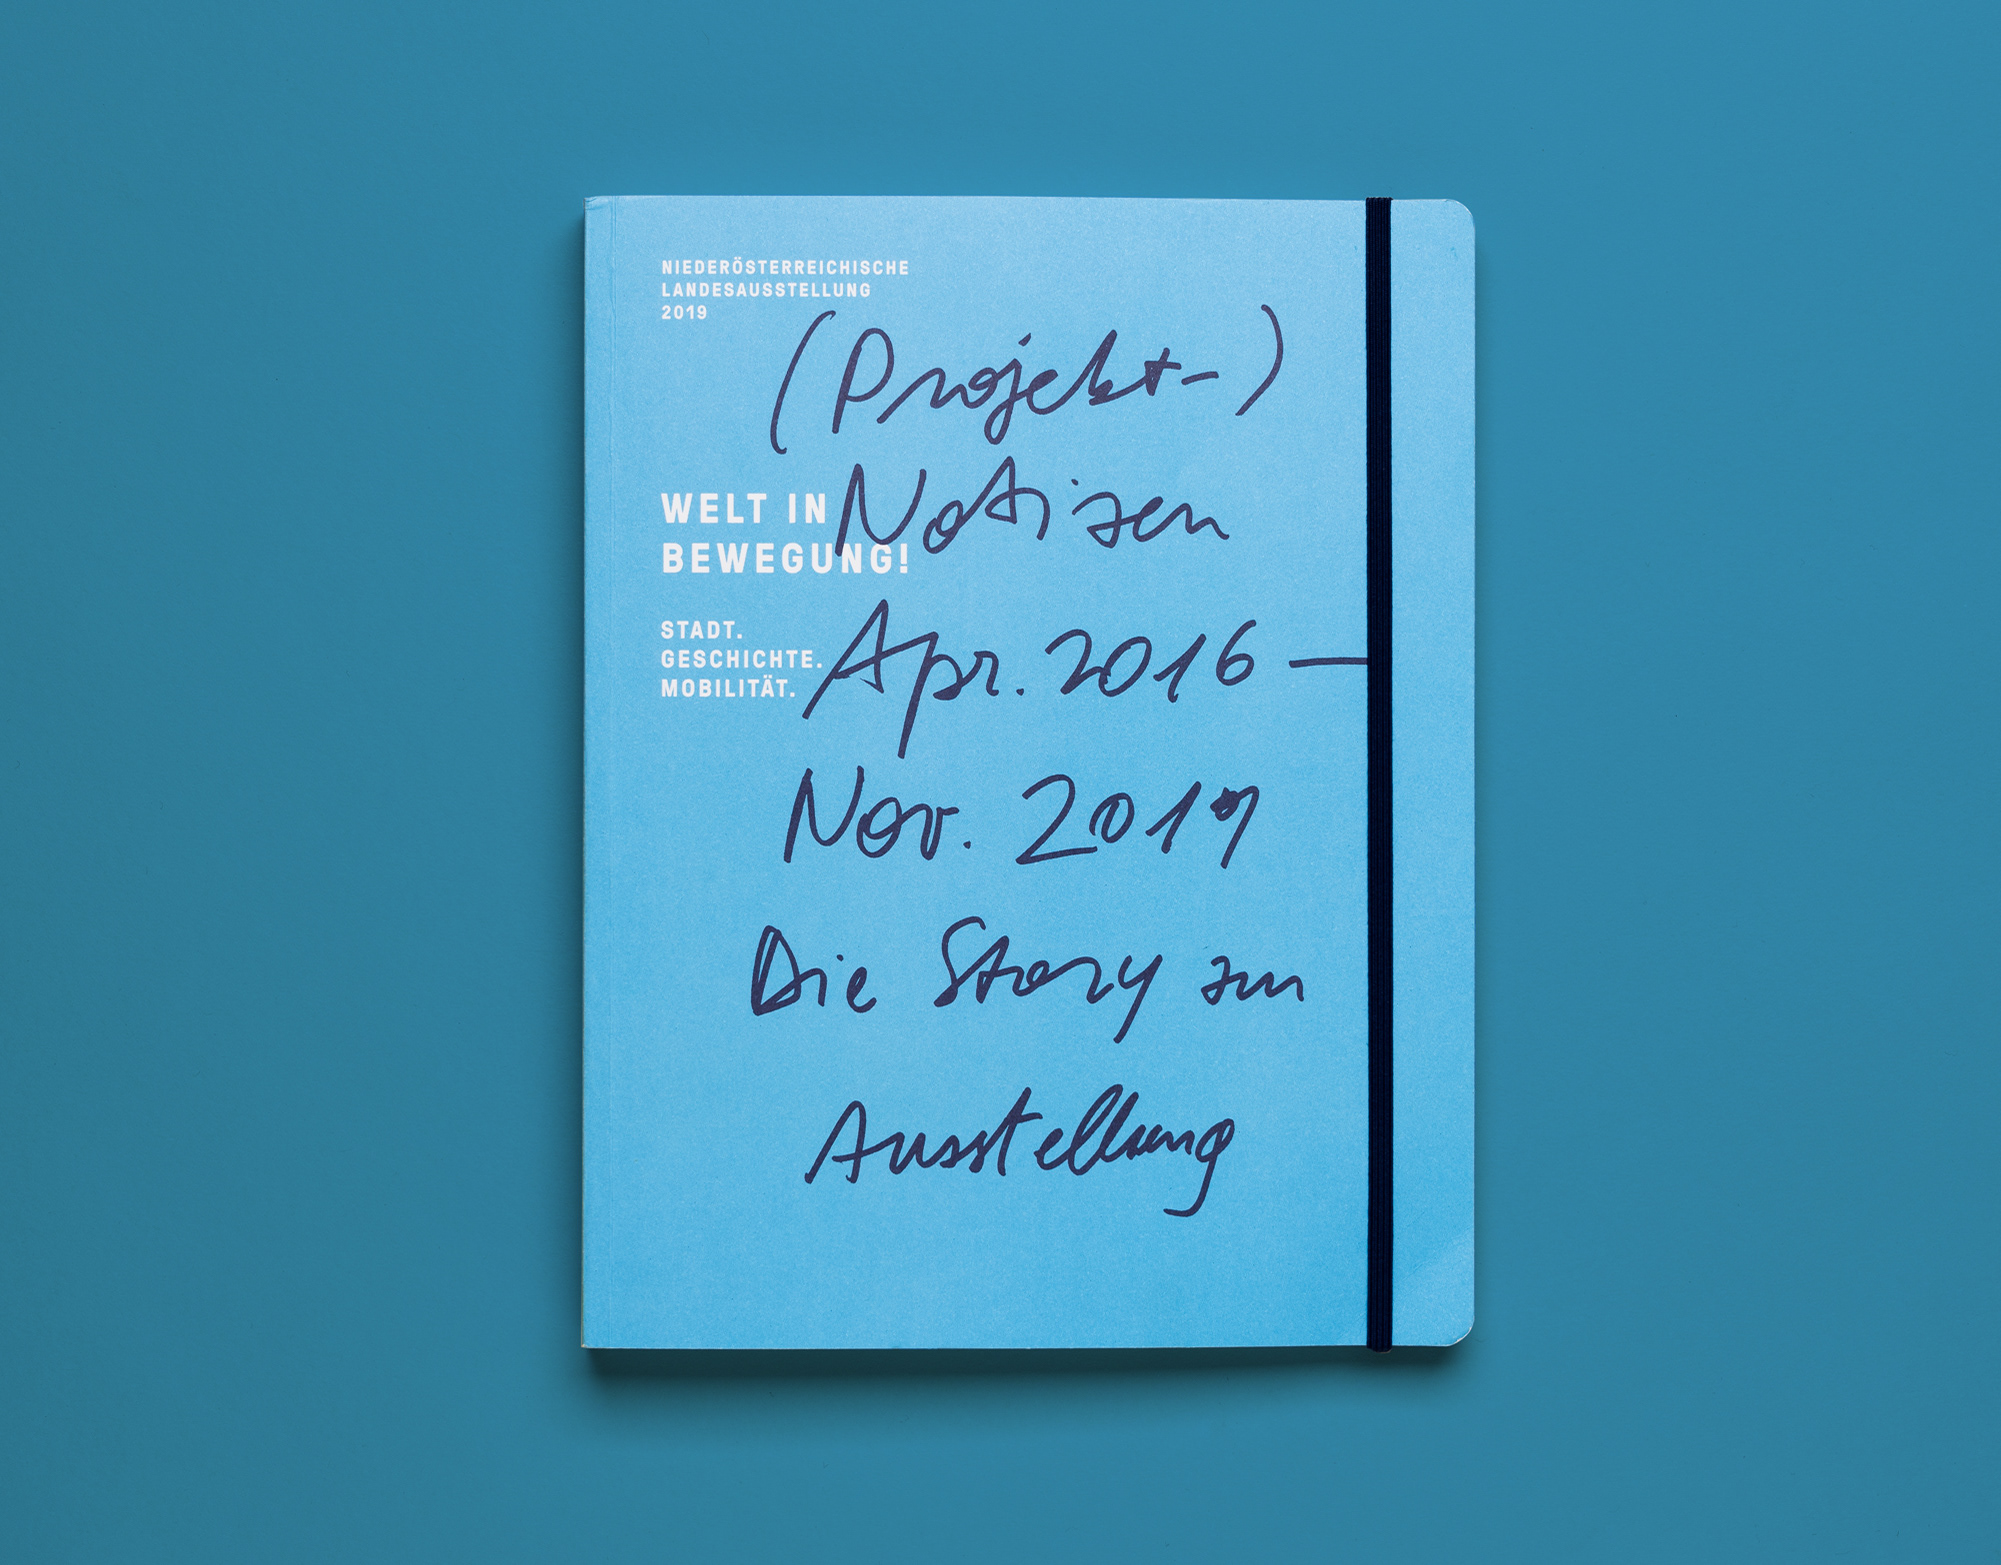 NIEDERÖSTERREICHISCHE
LANDESAUSSTELLUNG
2019
(Projekt-)
Notizen
WELT IN
BEWEGUNG!
STADT.
GESCHICHTE.
MOBILITÄT.
Apr. 2016 —
Nov. 2019
Die Story zur
Ausstellung